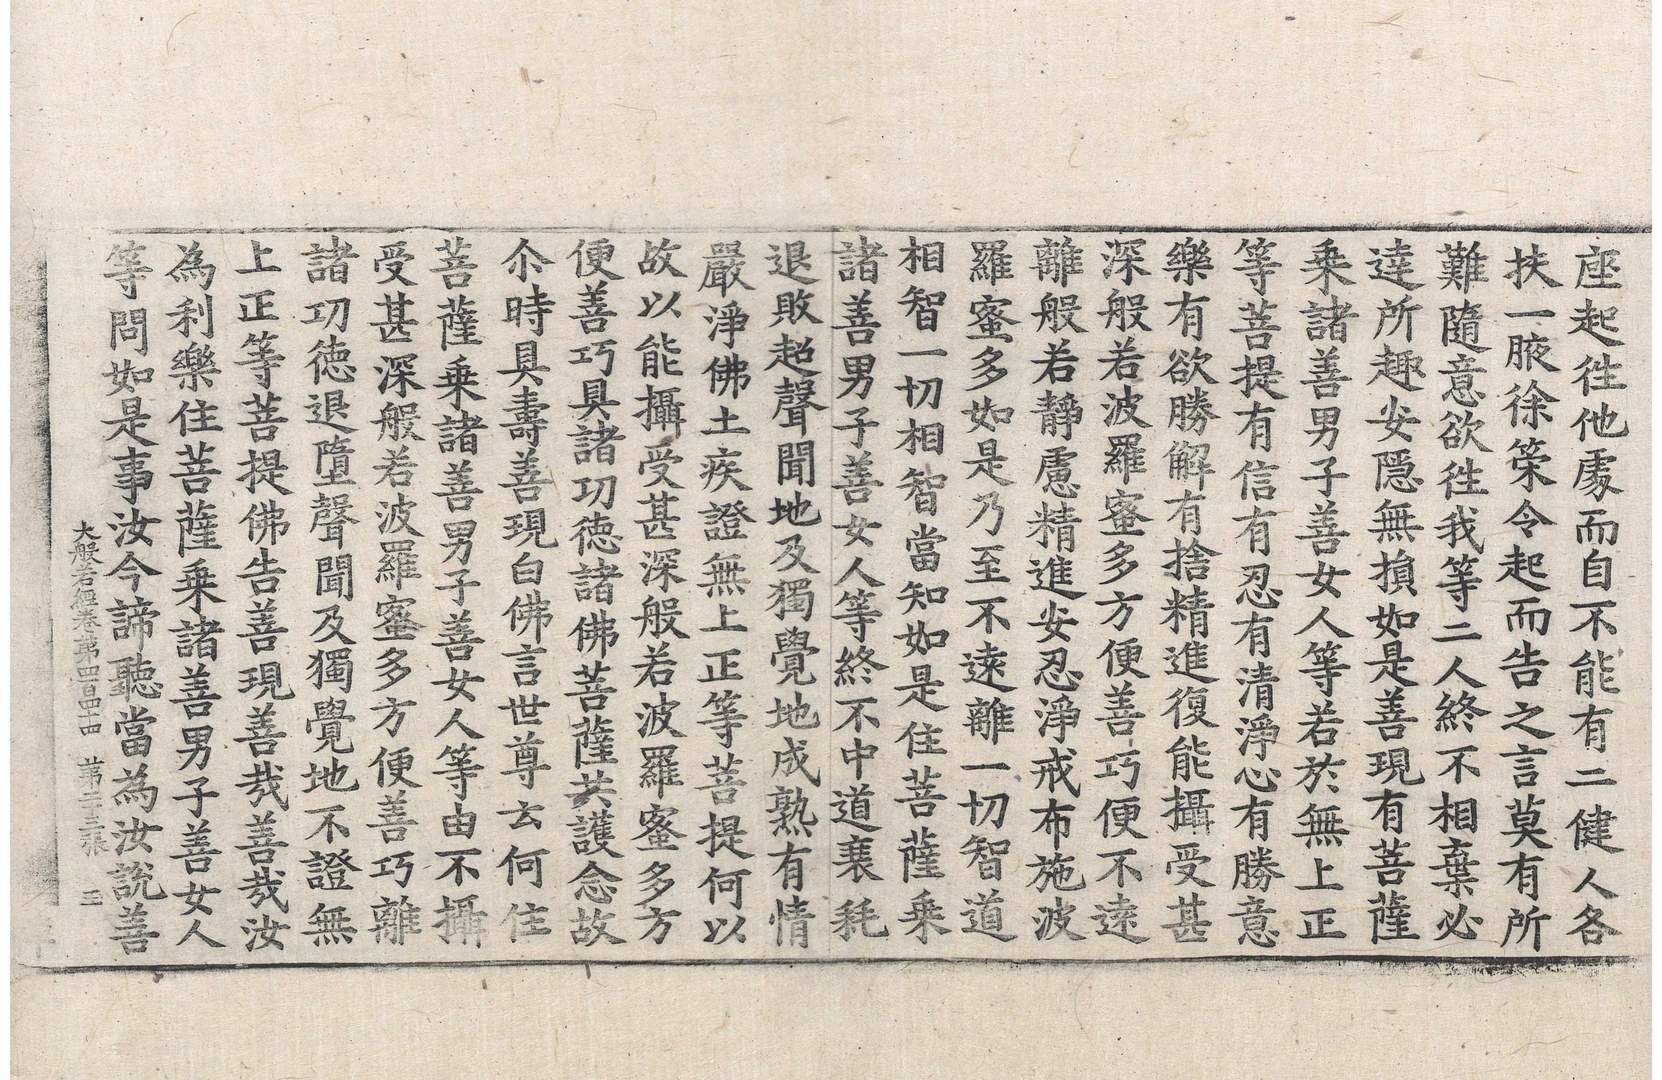 座起徃他處而自不能有二健人各
扶一腋徐策令起而告之言莫有所
難隨意欲徃我等二人終不相棄必
達所趣安隱無損如是善現有菩薩
乘諸善男子善女人等若於無上正
等菩提有信有忍有清淨心有勝意
樂有欲勝解有捨精進復能攝受甚
深般若波羅蜜多方便善巧便不遠
離般若靜慮精進安忍淨戒布施波
羅蜜多如是乃至不遠離一切智道
相智一切相智當知如是住菩薩乘
諸善男子善女人等終不中道衰耗
退敗超聲聞地及獨覺地成熟有情
嚴淨佛土疾證無上正等菩提何以
故以能攝受甚深般若波羅蜜多方
便善巧具諸功德諸佛菩薩共護念故
尒時具壽善現白佛言世尊云何住
菩薩乘諸善男子善女人等由不攝
受甚深般若波羅蜜多方便善巧離
諸功德退墮聲聞及獨覺地不證無
上正等菩提佛告善現善哉善哉汝
為利樂住菩薩乘諸善男子善女人
等問如是事汝今諦聽當為汝說善
大般若經卷第四百四十四 第二十三張 玉